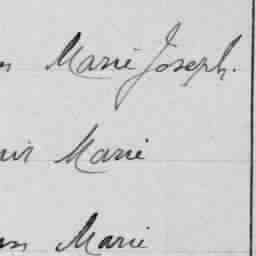 Marie Joseph.
Marie
Marie